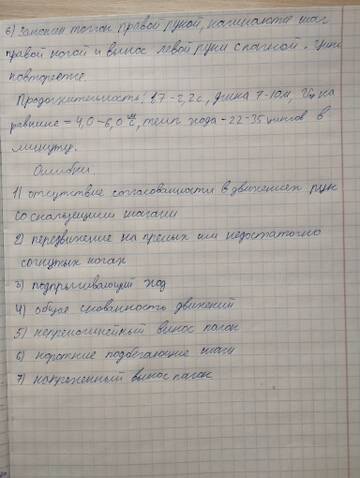 6) Закончен толчок правой рукой, начинают шаг
правой ногой и вынос левой руки с палкой. Цикл
повторяется.
Продолжительность: 1,7-2,2с, длина 7-10м, Vср на
равнине = 4,0-6,0 м/с, темп хода - 22-35 циклов в
минуту.
Ошибки.
1) отсутствие согласованности в движениях рук
со скользящими шагами
2) передвижение на прямых или недостаточно
согнутых ногах
3) подпрыгивающий ход
4) общая скованность движений
5) непрямолинейный вынос палок
6) короткие подбегающие шаги
7) напряженный вынос палок